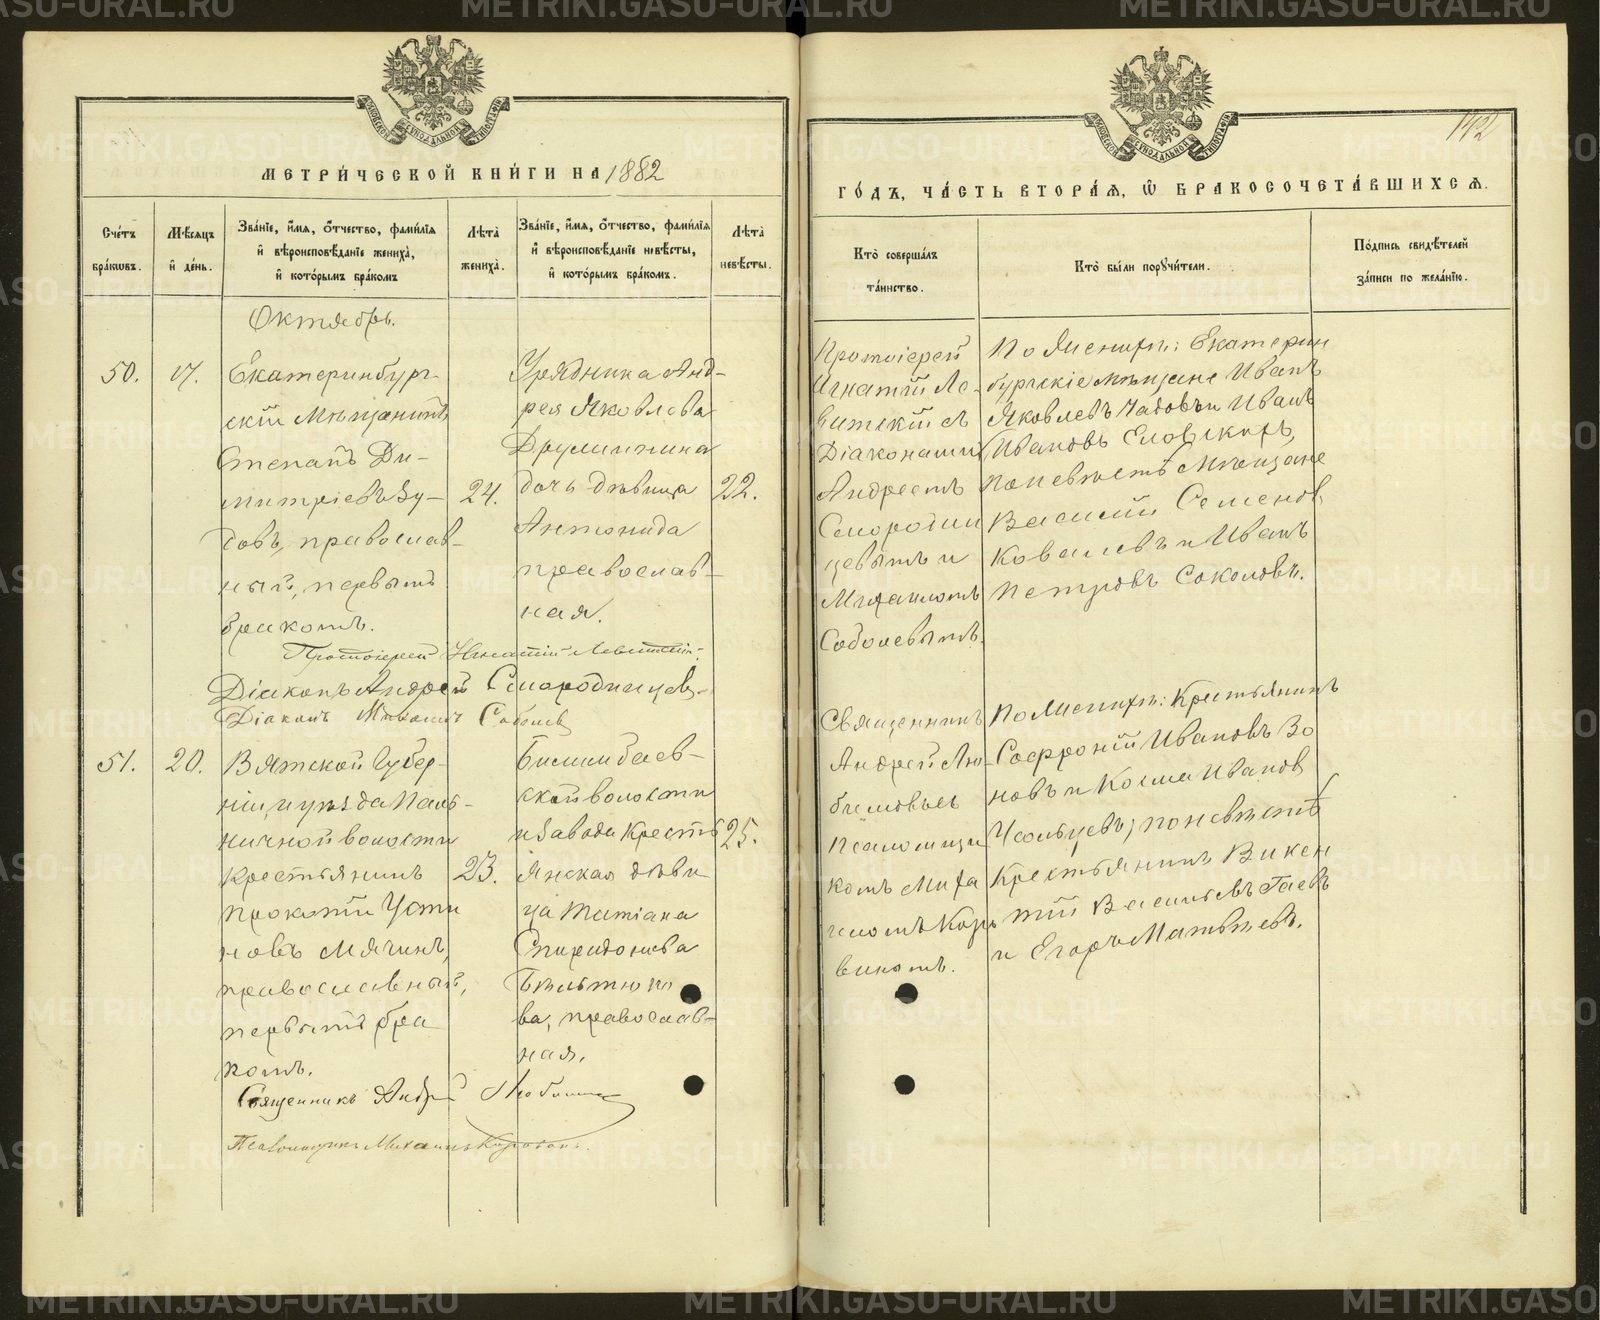 МЕТРИ́ЧЕСКОЙ КНИ́ГИ НА 1882
Сче́тъ бра́ковъ.
Мѣ́сяцъ и҆ де́нь.
Зва́нїе, и҆́мя, ѻ҆́тчество, фами́лїя и҆ вѣроисповѣ́данїе жениха̀, и҆ кото́рымъ бра́комъ
Лѣ́та̀ жениха̀.
Зва́нїе, и҆́мя, ѻ҆́тчество, фами́лїя и҆ вѣроисповѣ́данїе невѣ́сты, и҆ кото́рымъ бра́комъ.
Лѣ́та̀ невѣ́сты.
Октябрь.
50.
17.
Екатеринбург-
скій Мѣщанинъ
Степанъ Ди-
митріевъ Зу-
довъ, православ-
ный, первымъ
бракомъ.
24.
Урядника Анд-
рея Яковлева
дочь дѣвица
Антонида
православ-
ная.
22.
Протоіерей Игнатій Левитскій.
Діаконъ Андрей Смородинцевъ
Діаконъ Михаилъ Соболев
51.
20.
Вятской Губер-
ніи, и уѣзда Паль-
ничной волости
Крестьянинъ
Прокопій Усти
новъ Мячинъ,
православный,
первымъ бра
комъ.
23.
Билимбаев-
ской волости
и Завода Кресть
янская дѣви
ца Татіана
Спиридонова
ва, православ-
ная.
25.
Священникъ Андрей Любимов
Псаломщикъ Михаилъ Коровин
142
ГО́ДЪ, ЧА́СТЬ ВТОРА́Я, Ѡ҆ БРАКОСОЧЕТА́ВШИХСЯ.
Кто̀ соверша́лъ та́инство.
Кто̀ бы́ли порꙋчи́тели.
По́дпись свидѣ́телей за́писи по жела́нїю.
Протоіерей
Игнатій Ле-
витскій съ
Діаконами
Андреемъ
Смородин
цевымъ и
Михаиломъ
Соболевымъ.
По Женихѣ: Екатерин
бургскіе мѣщане Иванъ
Яковлевъ Чадовъ и Иванъ
Ивановъ Еловскихъ,
по невѣстѣ Мѣщане
Василій Семенов
Ковалевъ и Иванъ
Петровъ Соколовъ.
Священникъ
Андрей Лю-
бимовъ съ
Псаломщи
комъ Миха
иломъ Коро
винымъ.
По Женихѣ: Крестьянинъ
Софроній Ивановъ Во
новъ и Косма Иванов
по невѣстѣ
Крестьянинъ Викен
тій Васильевъ Гаевъ
и Егоръ Матвѣевъ.